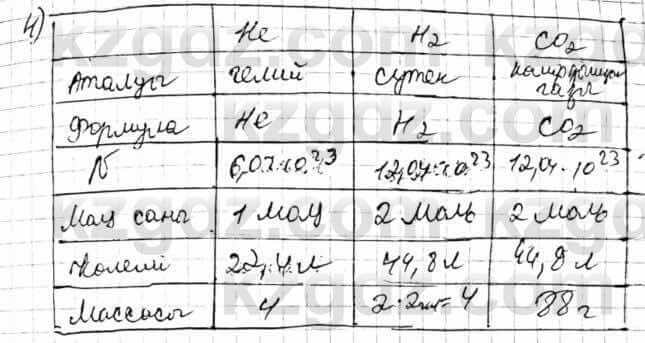 4)
He H₂ CO₂
Аталуы гелий сутек көмірқышқыл газы
Формула He H₂ CO₂
N 6,02·10²³ 12,04·10²³ 12,04·10²³
Моль саны 1 моль 2 моль 2 моль
Көлемі 22,4 л 44,8 л 44,8 л
Массасы 4 2·2 = 4 88 г
kzgdz.com